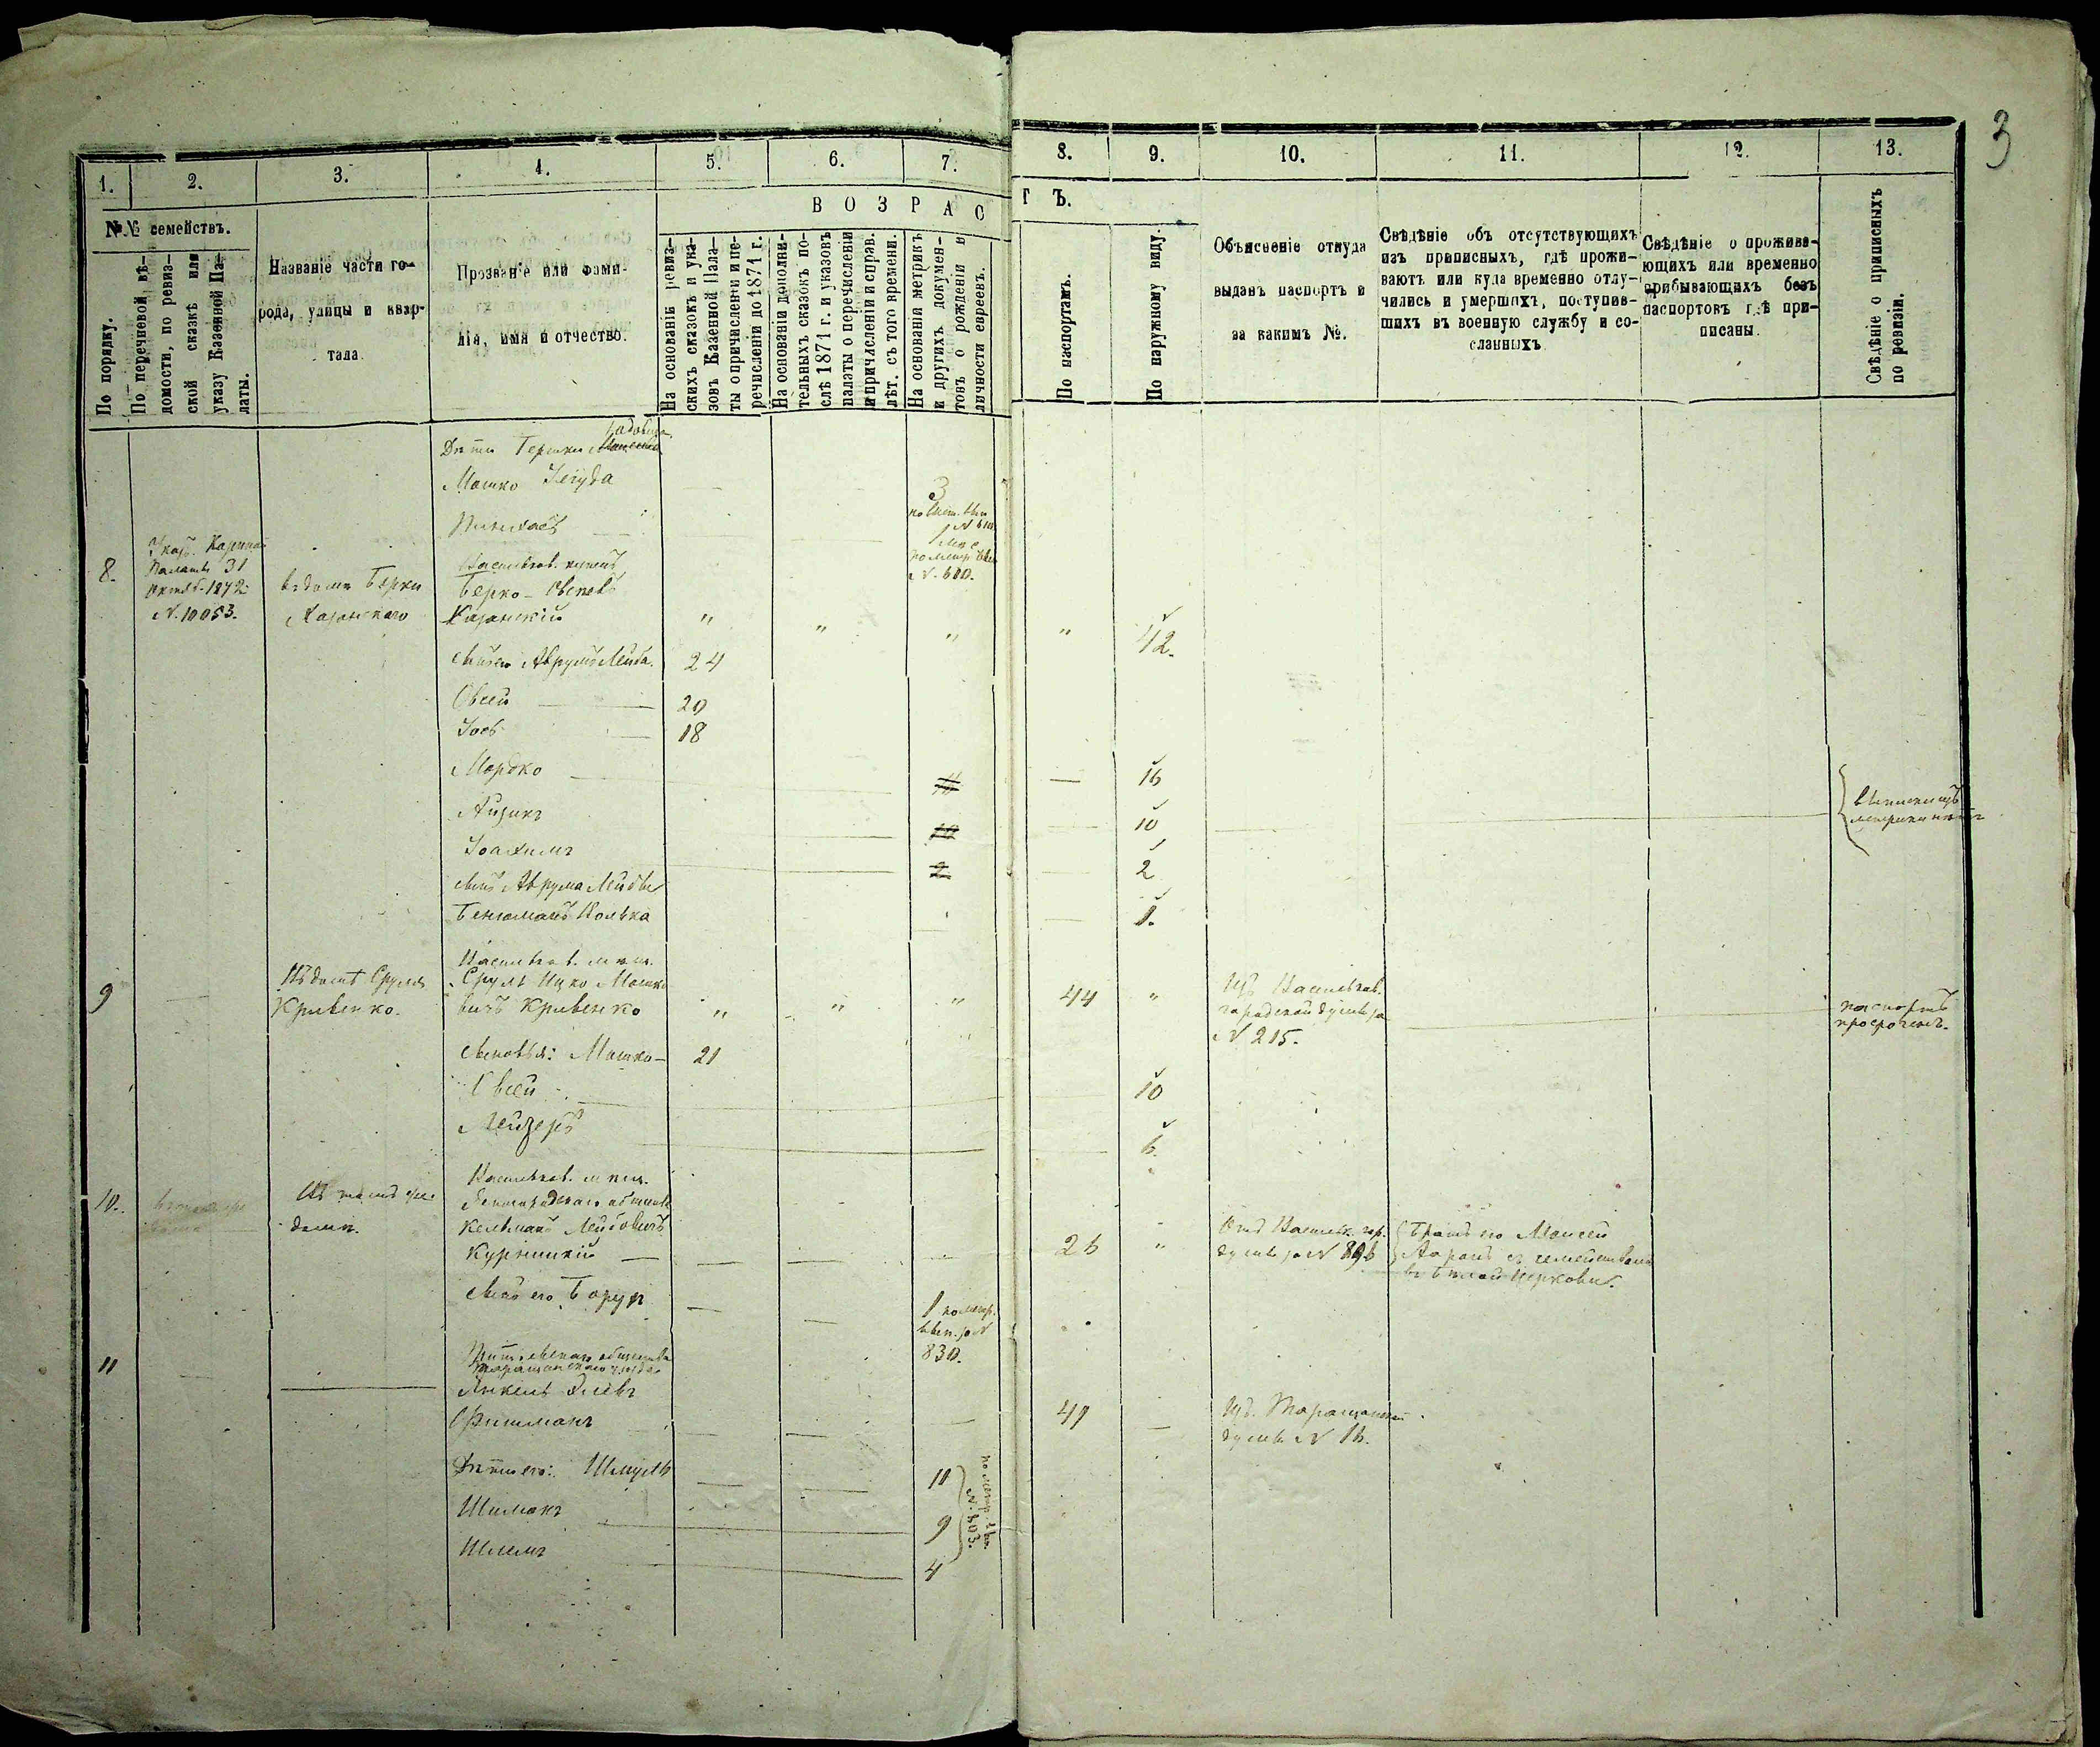 3
1.
2.
3.
4.
5.
6.
7.
8.
9.
10.
11.
12.
13.
№№ семействъ.
По порядку.
По перечневой вѣ-
домости, по ревиз-
ской сказкѣ или
указу Казенной Па-
латы.
Названіе части го-
рода, улицы и квар-
тала.
Прозваніе или фами-
лія, имя и отчество.
ВОЗРАСТЪ.
На основаніи ревиз-
скихъ сказокъ и ука-
зовъ Казенной Пала-
ты о причисленіи и пе-
речисленіи до 1871 г.
На основаніи дополни-
тельныхъ сказокъ по-
слѣ 1871 г. и указовъ
палаты о перечисленіи
и причисленіи и справ.
лѣт. съ того времени.
На основаніи метрикъ
и другихъ докумен-
товъ о рожденіи и
личности евреевъ.
По паспортамъ.
По наружному виду.
Объясненіе откуда
выданъ паспортъ и
за какимъ №.
Свѣдѣніе объ отсутствующихъ
изъ приписныхъ, гдѣ прожи-
ваютъ или куда временно отлу-
чились и умершихъ, поступив-
шихъ въ военную службу и со-
сланныхъ
Свѣдѣніе о прожива-
ющихъ или временно
прибывающихъ безъ
паспортовъ гдѣ при-
писаны.
Свѣдѣніе о приписныхъ
по ревизіи.
Дѣти Гершки
Мошко Іегуда
3
Пинхасъ
1
№ 600.
8.
Указ. Казенной
Палаты 31
Октяб. 1872
№. 10053.
въ домѣ Берки
Казанскаго
Васильков. купецъ
Берко
Казанскій
"
"
"
"
42.
Сынъ его Аврумъ Лейба.
24
Овсей
20
Іось
18
Мордко
16
Айзикъ
10
10
Іоахимъ
2
2
Сынъ Аврума Лейбы
Беньюманъ Волька
1.
9
Въ домѣ Сруля
Кривенко.
Васильков. мѣщ.
Сруль Ицко Мошко
вичъ Кривенко
"
"
"
44
"
Изъ Васильков.
городской думы за
№ 215.
паспортъ
просроченъ.
Сыновья: Мошко
21
Овсей
10
Лейзеръ
6.
10.
Въ томъ же
домѣ.
Васильков. мѣщ.
Кельманъ Лейбовичъ
Курницкій
26
"
Отъ Васильк. гор.
думы за № 896
Братъ по Моисей
Ааронъ съ семействомъ
въ Бѣлой Церкви.
Сынъ его Борух
1 по метр.
вып. за №
830.
11
Таращанскаго уѣзда
Янкель
Фишманъ
41
Изъ Таращанской
думы № 16.
Дѣти его: Шмуль
11
Шимонъ
9
4
по метр. вып.
№. 803.